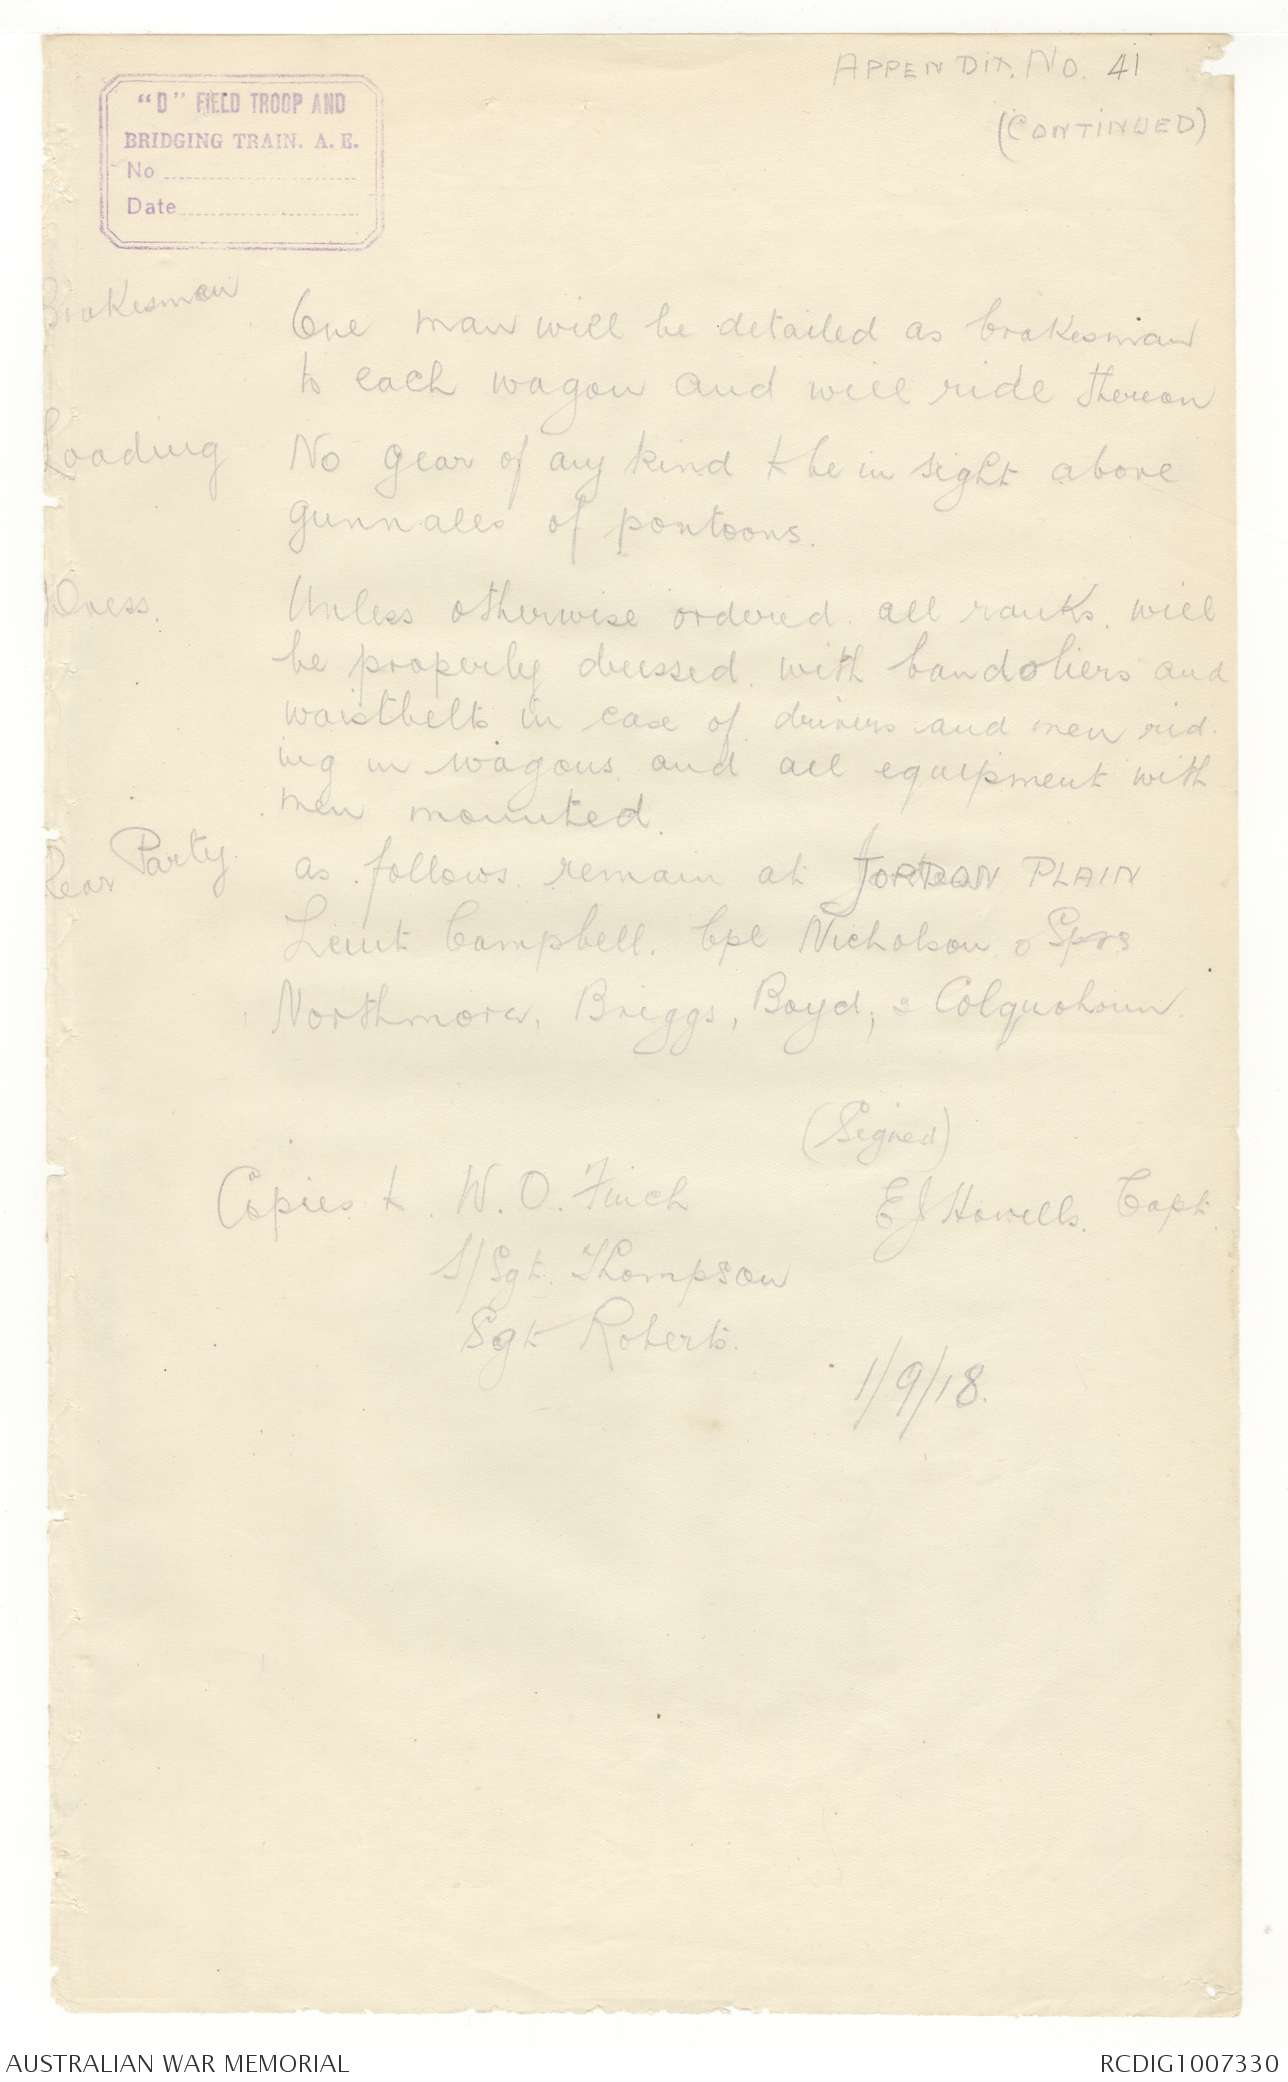 APPENDIX. NO. 41
(CONTINUED)
"D" FIELD TROOP AND
BRIDGING TRAIN. A. E.
No
Date
Brakesman
One man will be detailed as brakesman
to each wagon and will ride thereon
Loading
No gear of any kind to be in sight above
gunnales of pontoons.
Dress.
Unless otherwise ordered. all ranks. will
be properly dressed. with bandoliers and
waistbelts in case of drivers and men rid-
ing in wagons and all equipment with
men mounted.
Rear Party.
as follows remain at JORDAN PLAIN
Lieut Campbell. Cpl Nicholson & Sprs
Northmore, Briggs, Boyd, & Colquhoun.
(Signed)
Copies to. W. O. Finch
EJ Howells. Capt.
S/Sgt. Thompson
Sgt Roberts.
1/9/18.
AUSTRALIAN WAR MEMORIAL
RCDIG1007330